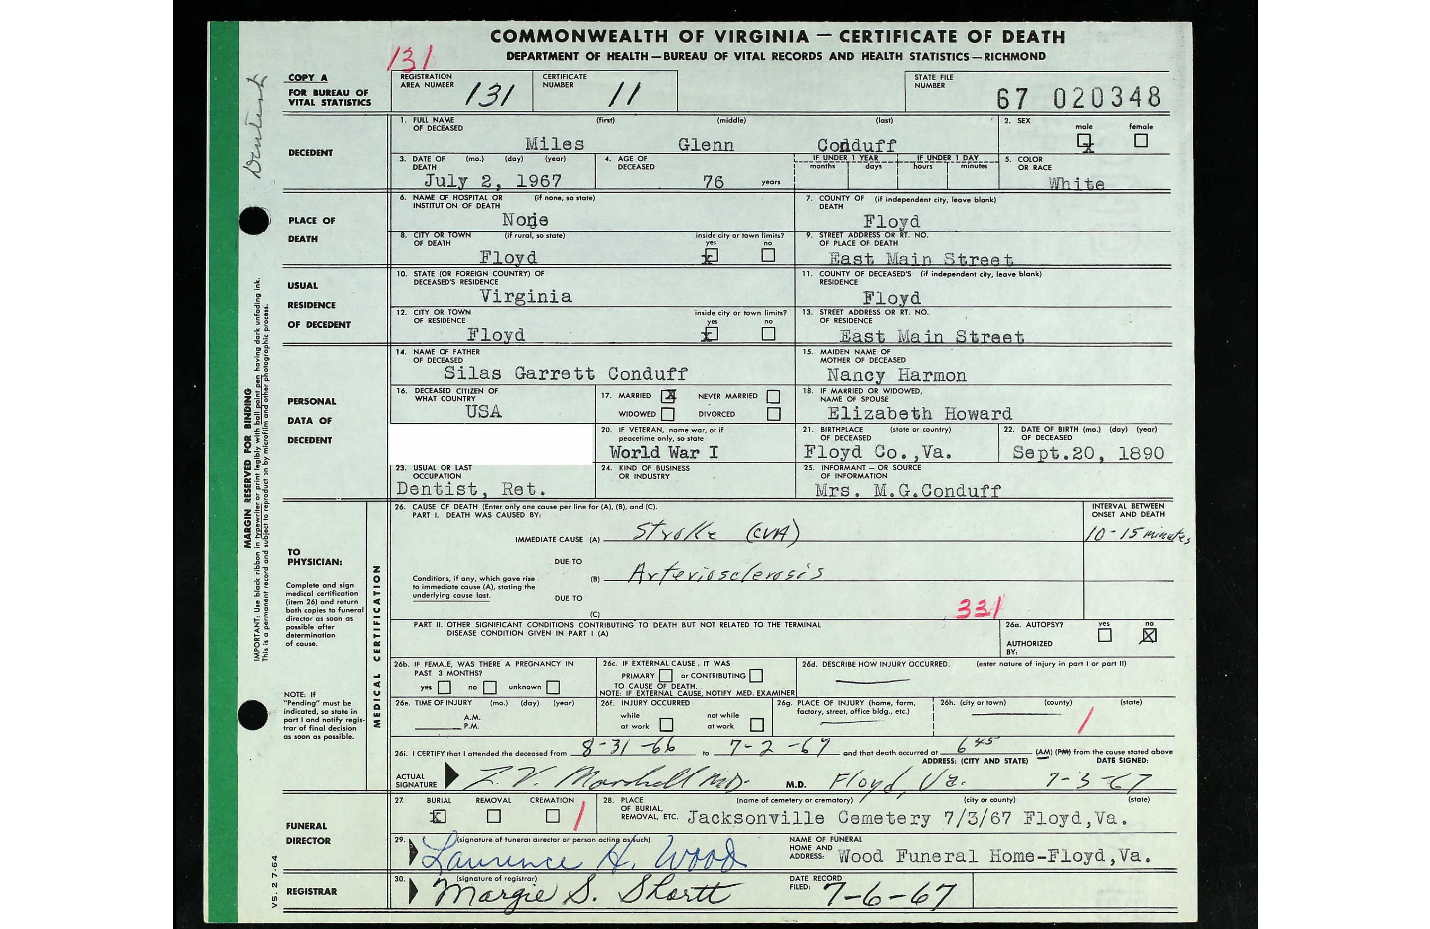 COMMONWEALTH OF VIRGINIA — CERTIFICATE OF DEATH
DEPARTMENT OF HEALTH—BUREAU OF VITAL RECORDS AND HEALTH STATISTICS—RICHMOND
131
COPY A
FOR BUREAU OF
VITAL STATISTICS
REGISTRATION
AREA NUMBER 131
CERTIFICATE
NUMBER 11
STATE FILE
NUMBER 67 020348
DECEDENT
1. FULL NAME (first) (middle) (last)
OF DECEASED
Miles Glenn Conduff
2. SEX
male female
3. DATE OF (mo.) (day) (year)
DEATH
July 2, 1967
4. AGE OF
DECEASED
76 years
IF UNDER 1 YEAR IF UNDER 1 DAY
months days hours minutes
5. COLOR
OR RACE
White
PLACE OF
DEATH
6. NAME OF HOSPITAL OR (if none, so state)
INSTITUTION OF DEATH
None
7. COUNTY OF (if independent city, leave blank)
DEATH
Floyd
8. CITY OR TOWN (if rural, so state) inside city or town limits?
OF DEATH yes no
Floyd
9. STREET ADDRESS OR RT. NO.
OF PLACE OF DEATH
East Main Street
USUAL
RESIDENCE
OF DECEDENT
10. STATE (OR FOREIGN COUNTRY) OF
DECEASED'S RESIDENCE
Virginia
11. COUNTY OF DECEASED'S (if independent city, leave blank)
RESIDENCE
Floyd
12. CITY OR TOWN inside city or town limits?
OF RESIDENCE yes no
Floyd
13. STREET ADDRESS OR RT. NO.
OF RESIDENCE
East Main Street
PERSONAL
DATA OF
DECEDENT
14. NAME OF FATHER
OF DECEASED
Silas Garrett Conduff
15. MAIDEN NAME OF
MOTHER OF DECEASED
Nancy Harmon
16. DECEASED CITIZEN OF
WHAT COUNTRY
USA
17. MARRIED NEVER MARRIED
WIDOWED DIVORCED
18. IF MARRIED OR WIDOWED,
NAME OF SPOUSE
Elizabeth Howard
20. IF VETERAN, name war, or if
peacetime only, so state
World War I
21. BIRTHPLACE (state or country)
OF DECEASED
Floyd Co.,Va.
22. DATE OF BIRTH (mo.) (day) (year)
OF DECEASED
Sept.20, 1890
23. USUAL OR LAST
OCCUPATION
Dentist, Ret.
24. KIND OF BUSINESS
OR INDUSTRY
25. INFORMANT — OR SOURCE
OF INFORMATION
Mrs. M.G.Conduff
TO
PHYSICIAN:
Complete and sign
medical certification
(item 26) and return
both copies to funeral
director as soon as
possible after
determination
of cause.
NOTE: If
"Pending" must be
indicated, so state in
part I and notify regis-
trar of final decision
as soon as possible.
MEDICAL CERTIFICATION
26. CAUSE OF DEATH (Enter only one cause per line for (A), (B), and (C).
PART I. DEATH WAS CAUSED BY:
INTERVAL BETWEEN
ONSET AND DEATH
IMMEDIATE CAUSE (A) Stroke (CVA) 10-15 minutes
DUE TO
Conditions, if any, which gave rise
to immediate cause (A), stating the
underlying cause last.
(B) Arteriosclerosis
DUE TO
(C)
331
PART II. OTHER SIGNIFICANT CONDITIONS CONTRIBUTING TO DEATH BUT NOT RELATED TO THE TERMINAL
DISEASE CONDITION GIVEN IN PART I (A)
26a. AUTOPSY? yes no
AUTHORIZED
BY:
26b. IF FEMALE, WAS THERE A PREGNANCY IN
PAST 3 MONTHS?
yes no unknown
26c. IF EXTERNAL CAUSE, IT WAS
PRIMARY or CONTRIBUTING
TO CAUSE OF DEATH.
NOTE: IF EXTERNAL CAUSE, NOTIFY MED. EXAMINER
26d. DESCRIBE HOW INJURY OCCURRED. (enter nature of injury in part I or part II)
26e. TIME OF INJURY (mo.) (day) (year)
A.M.
P.M.
26f. INJURY OCCURRED
while not while
at work at work
26g. PLACE OF INJURY (home, farm,
factory, street, office bldg., etc.)
26h. (city or town) (county) (state)
26i. I CERTIFY that I attended the deceased from 8-31-66 to 7-2-67 and that death occurred at 6 45 (AM) (PM) from the cause stated above
ADDRESS: (CITY AND STATE) DATE SIGNED:
ACTUAL
SIGNATURE L.V. Marshall M.D. M.D. Floyd, Va. 7-3-67
FUNERAL
DIRECTOR
27. BURIAL REMOVAL CREMATION
28. PLACE (name of cemetery or crematory) (city or county) (state)
OF BURIAL,
REMOVAL, ETC.
Jacksonville Cemetery 7/3/67 Floyd,Va.
29. (signature of funeral director or person acting as such)
Laurence H. Wood
NAME OF FUNERAL
HOME AND
ADDRESS: Wood Funeral Home-Floyd,Va.
REGISTRAR
30. (signature of registrar)
Margie S. Shortt
DATE RECORD
FILED: 7-6-67
MARGIN RESERVED FOR BINDING
IMPORTANT: Use black ribbon in typewriter or print legibly with ball point pen having dark unfading ink.
This is a permanent record and subject to reproduction by microfilm and other photographic process.
VS. 2 7-64